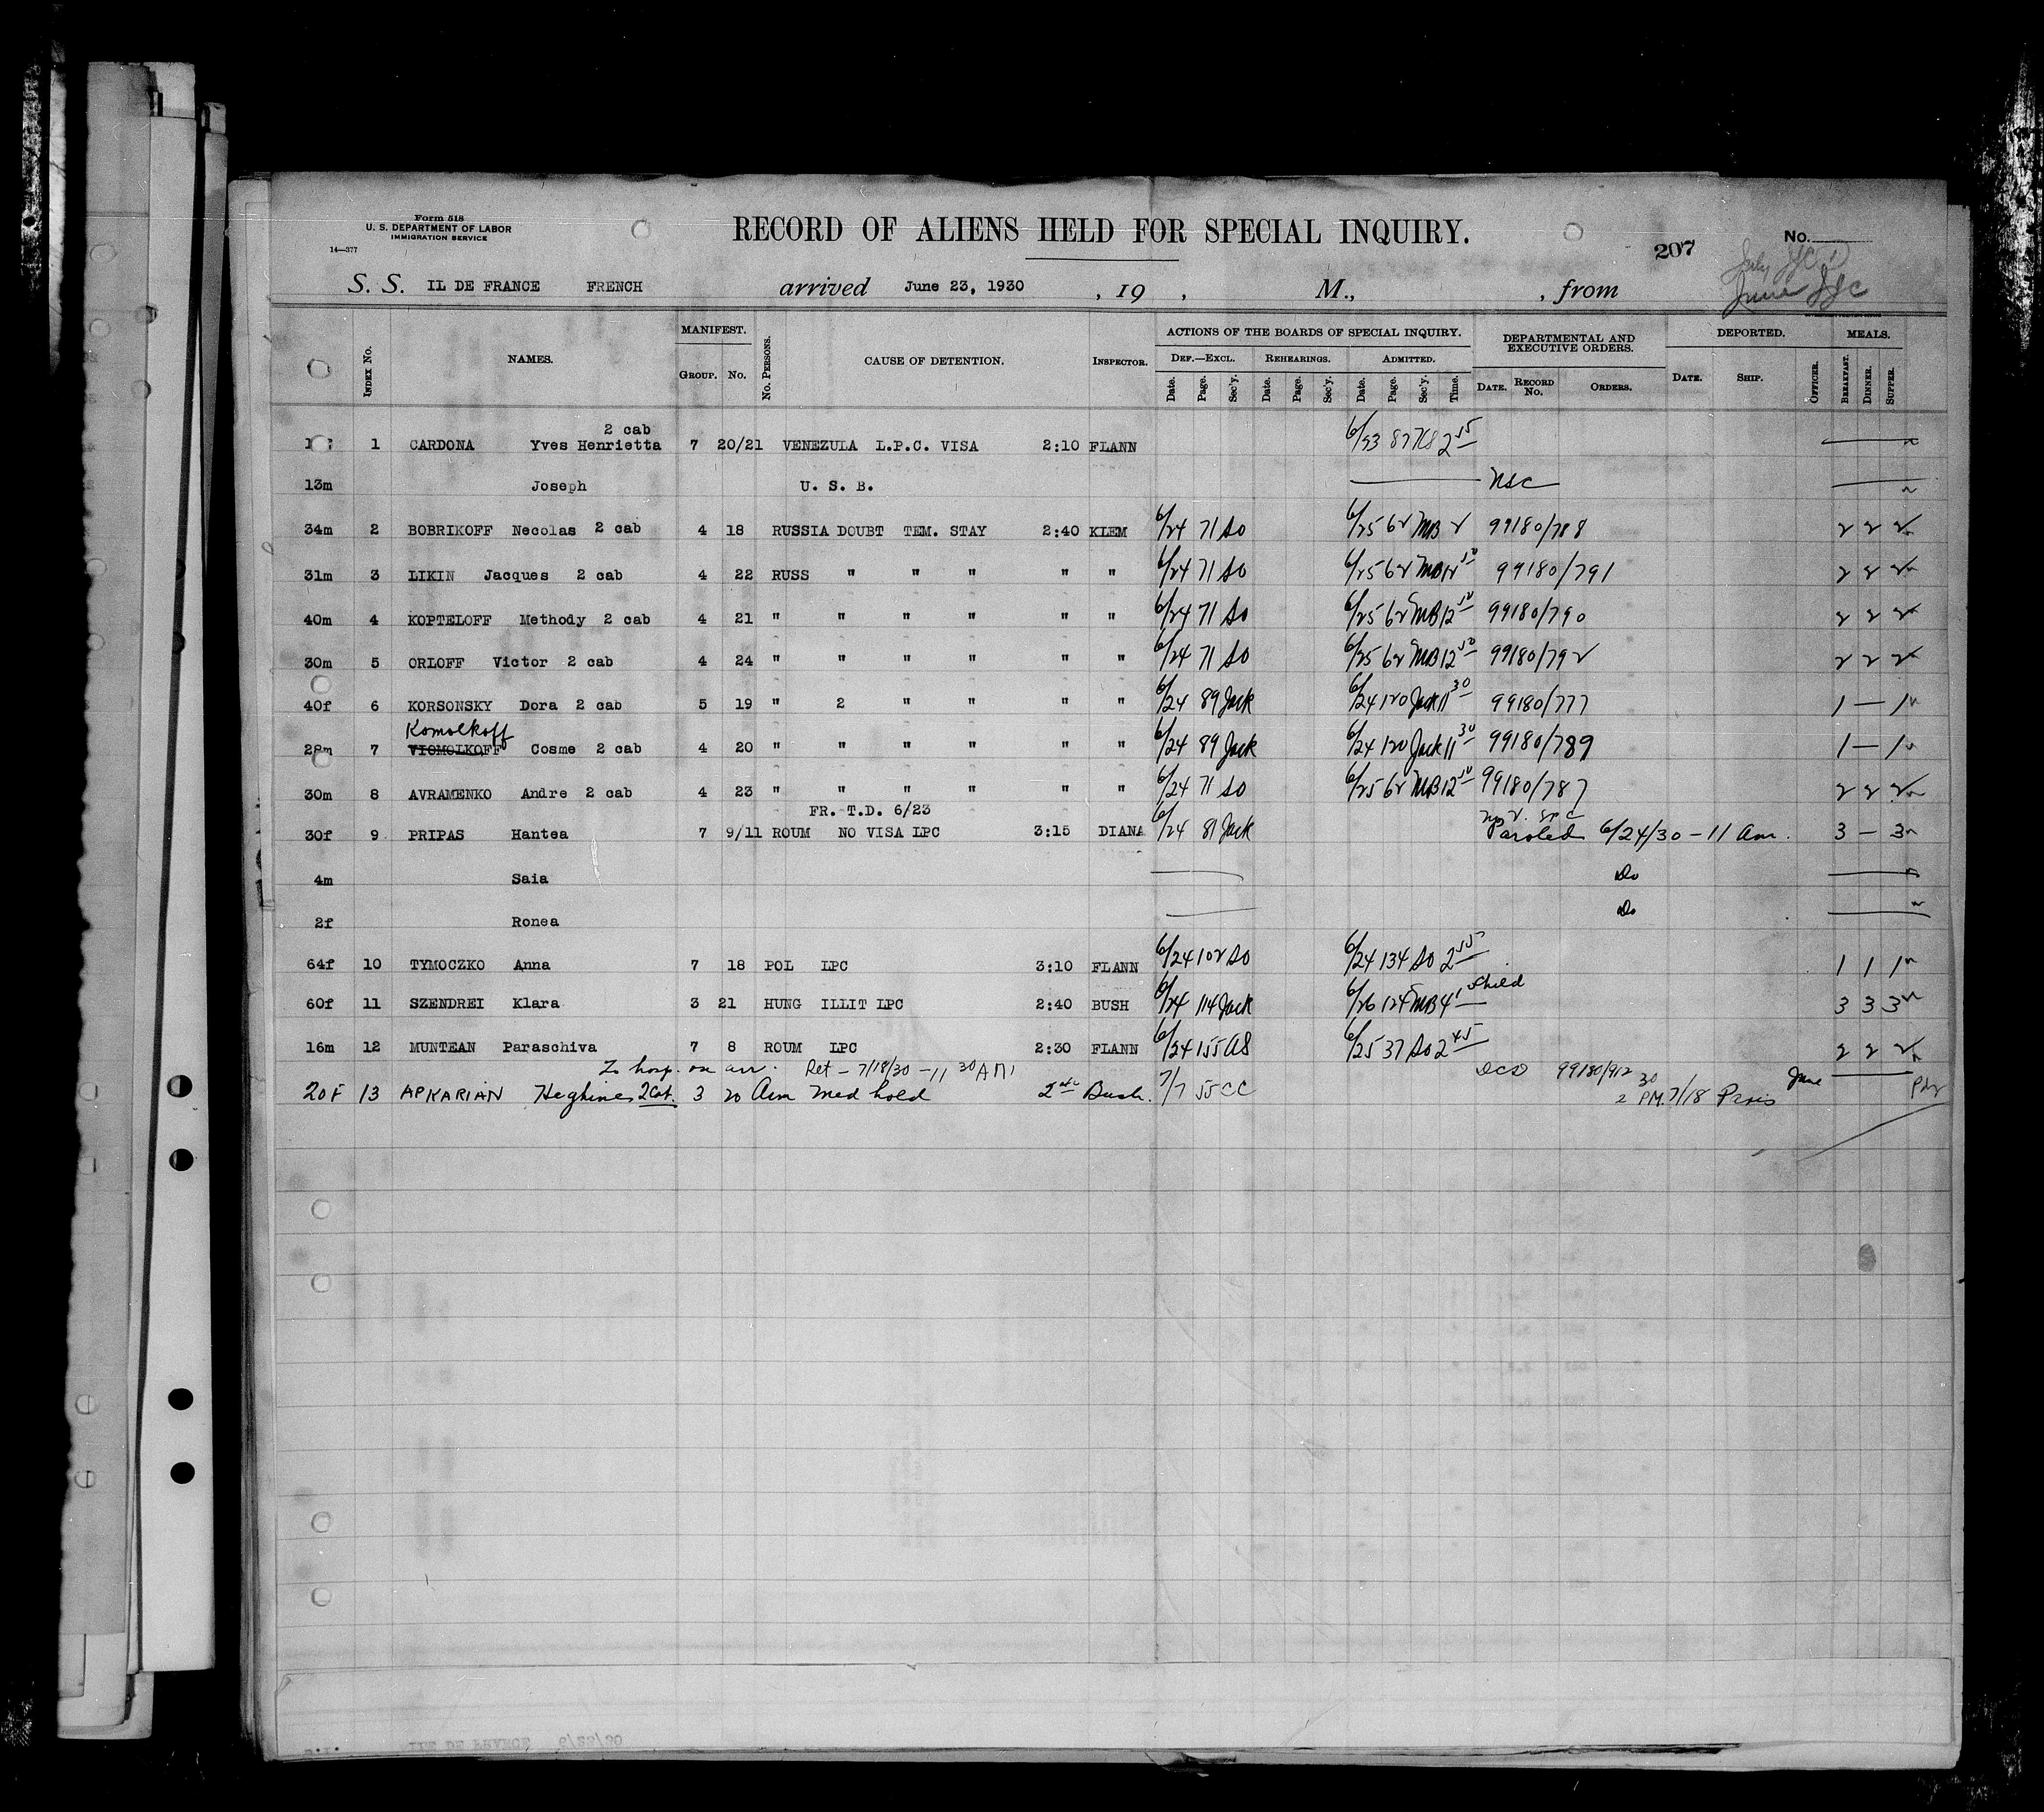 Form 518
U. S. DEPARTMENT OF LABOR
IMMIGRATION SERVICE
14—377
RECORD OF ALIENS HELD FOR SPECIAL INQUIRY.
207
No.
S. S. IL DE FRANCE FRENCH arrived June 23, 1930 , 19 , M., , from
July
June
INDEX No.
NAMES.
MANIFEST.
GROUP. No.
No. PERSONS.
CAUSE OF DETENTION.
INSPECTOR.
ACTIONS OF THE BOARDS OF SPECIAL INQUIRY.
DEF.—EXCL. REHEARINGS. ADMITTED.
Date. Page. Sec'y. Date. Page. Sec'y. Date. Page. Sec'y. Time.
DEPARTMENTAL AND EXECUTIVE ORDERS.
DATE. RECORD No. ORDERS.
DEPORTED.
DATE. SHIP. OFFICER.
MEALS.
BREAKFAST. DINNER. SUPPER.
2 cab
1 CARDONA Yves Henrietta 7 20/21 VENEZULA L.P.C. VISA 2:10 FLANN
13m Joseph U. S. B. NSC
34m 2 BOBRIKOFF Necolas 2 cab 4 18 RUSSIA DOUBT TEM. STAY 2:40 KLEM 6/24 71 SO 6/25 62 MB 2 99180/788 2 2 2
31m 3 LIKIN Jacques 2 cab 4 22 RUSS " " " " " 6/24 71 SO 6/25 62 MB 12 50 99180/791 2 2 2
40m 4 KOPTELOFF Methody 2 cab 4 21 " " " " " " 6/24 71 SO 6/25 62 MB 12 50 99180/790 2 2 2
30m 5 ORLOFF Victor 2 cab 4 24 " " " " " " 6/24 71 SO 6/25 62 MB 12 50 99180/792 2 2 2
40f 6 KORSONSKY Dora 2 cab 5 19 " 2 " " " " 6/24 89 Jack 6/24 120 Jack 11 30 99180/777 1 — 1
Komolkoff
28m 7 VIOMOLKOFF Cosme 2 cab 4 20 " " " " " " 6/24 89 Jack 6/24 120 Jack 11 30 99180/789 1 — 1
30m 8 AVRAMENKO Andre 2 cab 4 23 " " " " " " 6/24 71 SO 6/25 62 MB 12 50 99180/787 2 2 2
FR. T.D. 6/23
30f 9 PRIPAS Hantea 7 9/11 ROUM NO VISA LPC 3:15 DIANA 6/24 81 Jack Paroled 6/24/30 - 11 Am. 3 — 3
4m Saia Do
2f Ronea Do
64f 10 TYMOCZKO Anna 7 18 POL LPC 3:10 FLANN 6/24 102 SO 6/24 134 SO 2 55 1 1 1
60f 11 SZENDREI Klara 3 21 HUNG ILLIT LPC 2:40 BUSH 6/24 114 Jack 6/26 124 MB 4 3 3 3
16m 12 MUNTEAN Paraschiva 7 8 ROUM LPC 2:30 FLANN 6/24 155 AS 6/25 37 SO 2 45 2 2 2
To hosp. on arr. Ret - 7/18/30 - 11 30 AM 99180/912 June
20F 13 APKARIAN Heghine 2 Cab. 3 20 Arm Med hold Bush. 7/7 55 CC 2 30 PM. 7/18 Paris
ILE DE FRANCE 6/23/30